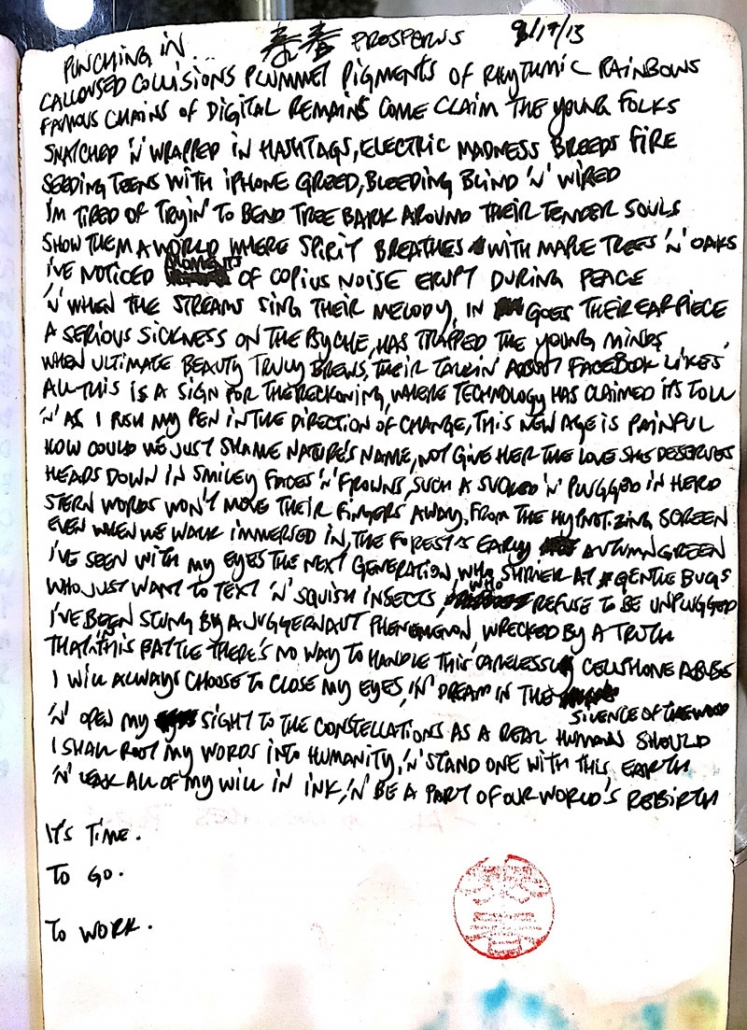 PUNCHING IN... PROSPERUS 9/17/13
CALLOUSED COLLISIONS PLUMMET PIGMENTS OF RHYTHMIC RAINBOWS
FAMOUS CHAINS OF DIGITAL REMAINS COME CLAIM THE YOUNG FOLKS
SNATCHED 'N' WRAPPED IN HASHTAGS, ELECTRIC MADNESS BREEDS FIRE
SEEDING TEENS WITH IPHONE GREED, BLEEDING BLIND 'N' WIRED
I'M TIRED OF TRYIN' TO BEND TREE BARK AROUND THEIR TENDER SOULS
SHOW THEM A WORLD WHERE SPIRIT BREATHES WITH MAPLE TREES 'N' OAKS
I'VE NOTICED MOMENTS OF COPIUS NOISE ERUPT DURING PEACE
'N' WHEN THE STREAMS SING THEIR MELODY, IN GOES THEIR EAR PIECE
A SERIOUS SICKNESS ON THE PSYCHE, HAS TRAPPED THE YOUNG MINDS
WHEN ULTIMATE BEAUTY TRULY BREWS, THEIR TALKIN' ABOUT FACEBOOK LIKES
ALL THIS IS A SIGN FOR THE RECKONING, WHERE TECHNOLOGY HAS CLAIMED ITS TOLL
'N' AS I PUSH MY PEN IN THE DIRECTION OF CHANGE, THIS NEW AGE IS PAINFUL
HOW COULD WE JUST SHAME NATURE'S NAME, NOT GIVE HER THE LOVE SHE DESERVES
HEADS DOWN IN SMILEY FACES 'N' FROWNS, SUCH A SUCKED 'N' PLUGGED IN HERD
STERN WORDS WON'T MOVE THEIR FINGERS AWAY, FROM THE HYPNOTIZING SCREEN
EVEN WHEN WE WALK IMMERSED IN, THE FOREST'S EARLY AUTUMN GREEN
I'VE SEEN WITH MY EYES THE NEXT GENERATION, WHO SHRIEK AT GENTLE BUGS
WHO JUST WANT TO TEXT 'N' SQUISH INSECTS, WHO REFUSE TO BE UNPLUGGED
I'VE BEEN STUNG BY A JUGGERNAUT PHENOMENON WRECKED BY A TRUTH
THAT IN THIS BATTLE THERE'S NO WAY TO HANDLE THIS CARELESS CELLPHONE ABUSE
I WILL ALWAYS CHOOSE TO CLOSE MY EYES, 'N' DREAM IN THE SILENCE OF THE WOOD
'N' OPEN MY SIGHT TO THE CONSTELLATIONS AS A REAL HUMAN SHOULD
I SHALL ROOT MY WORDS INTO HUMANITY, 'N' STAND ONE WITH THIS EARTH
'N' LEAK ALL OF MY WILL IN INK, 'N' BE A PART OF OUR WORLD'S REBIRTH
IT'S TIME.
TO GO.
TO WORK.